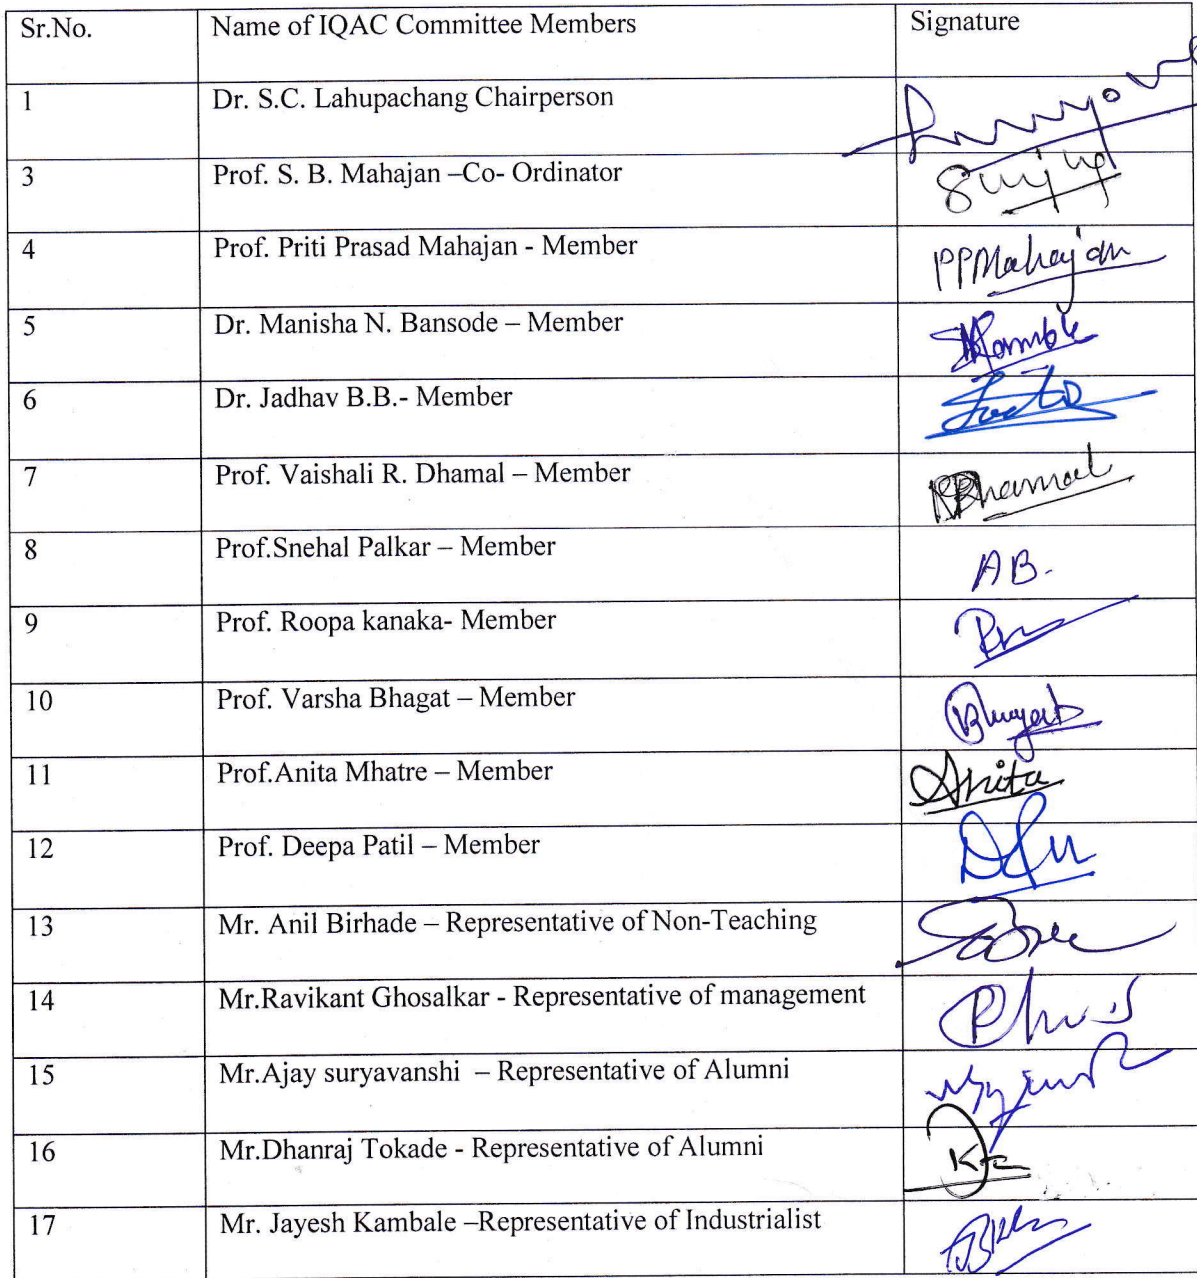 Sr.No. Name of IQAC Committee Members Signature
1 Dr. S.C. Lahupachang Chairperson
3 Prof. S. B. Mahajan –Co- Ordinator
4 Prof. Priti Prasad Mahajan - Member PPMahajan
5 Dr. Manisha N. Bansode – Member
6 Dr. Jadhav B.B.- Member
7 Prof. Vaishali R. Dhamal – Member
8 Prof.Snehal Palkar – Member AB.
9 Prof. Roopa kanaka- Member
10 Prof. Varsha Bhagat – Member
11 Prof.Anita Mhatre – Member Anita
12 Prof. Deepa Patil – Member
13 Mr. Anil Birhade – Representative of Non-Teaching
14 Mr.Ravikant Ghosalkar - Representative of management
15 Mr.Ajay suryavanshi – Representative of Alumni
16 Mr.Dhanraj Tokade - Representative of Alumni
17 Mr. Jayesh Kambale –Representative of Industrialist